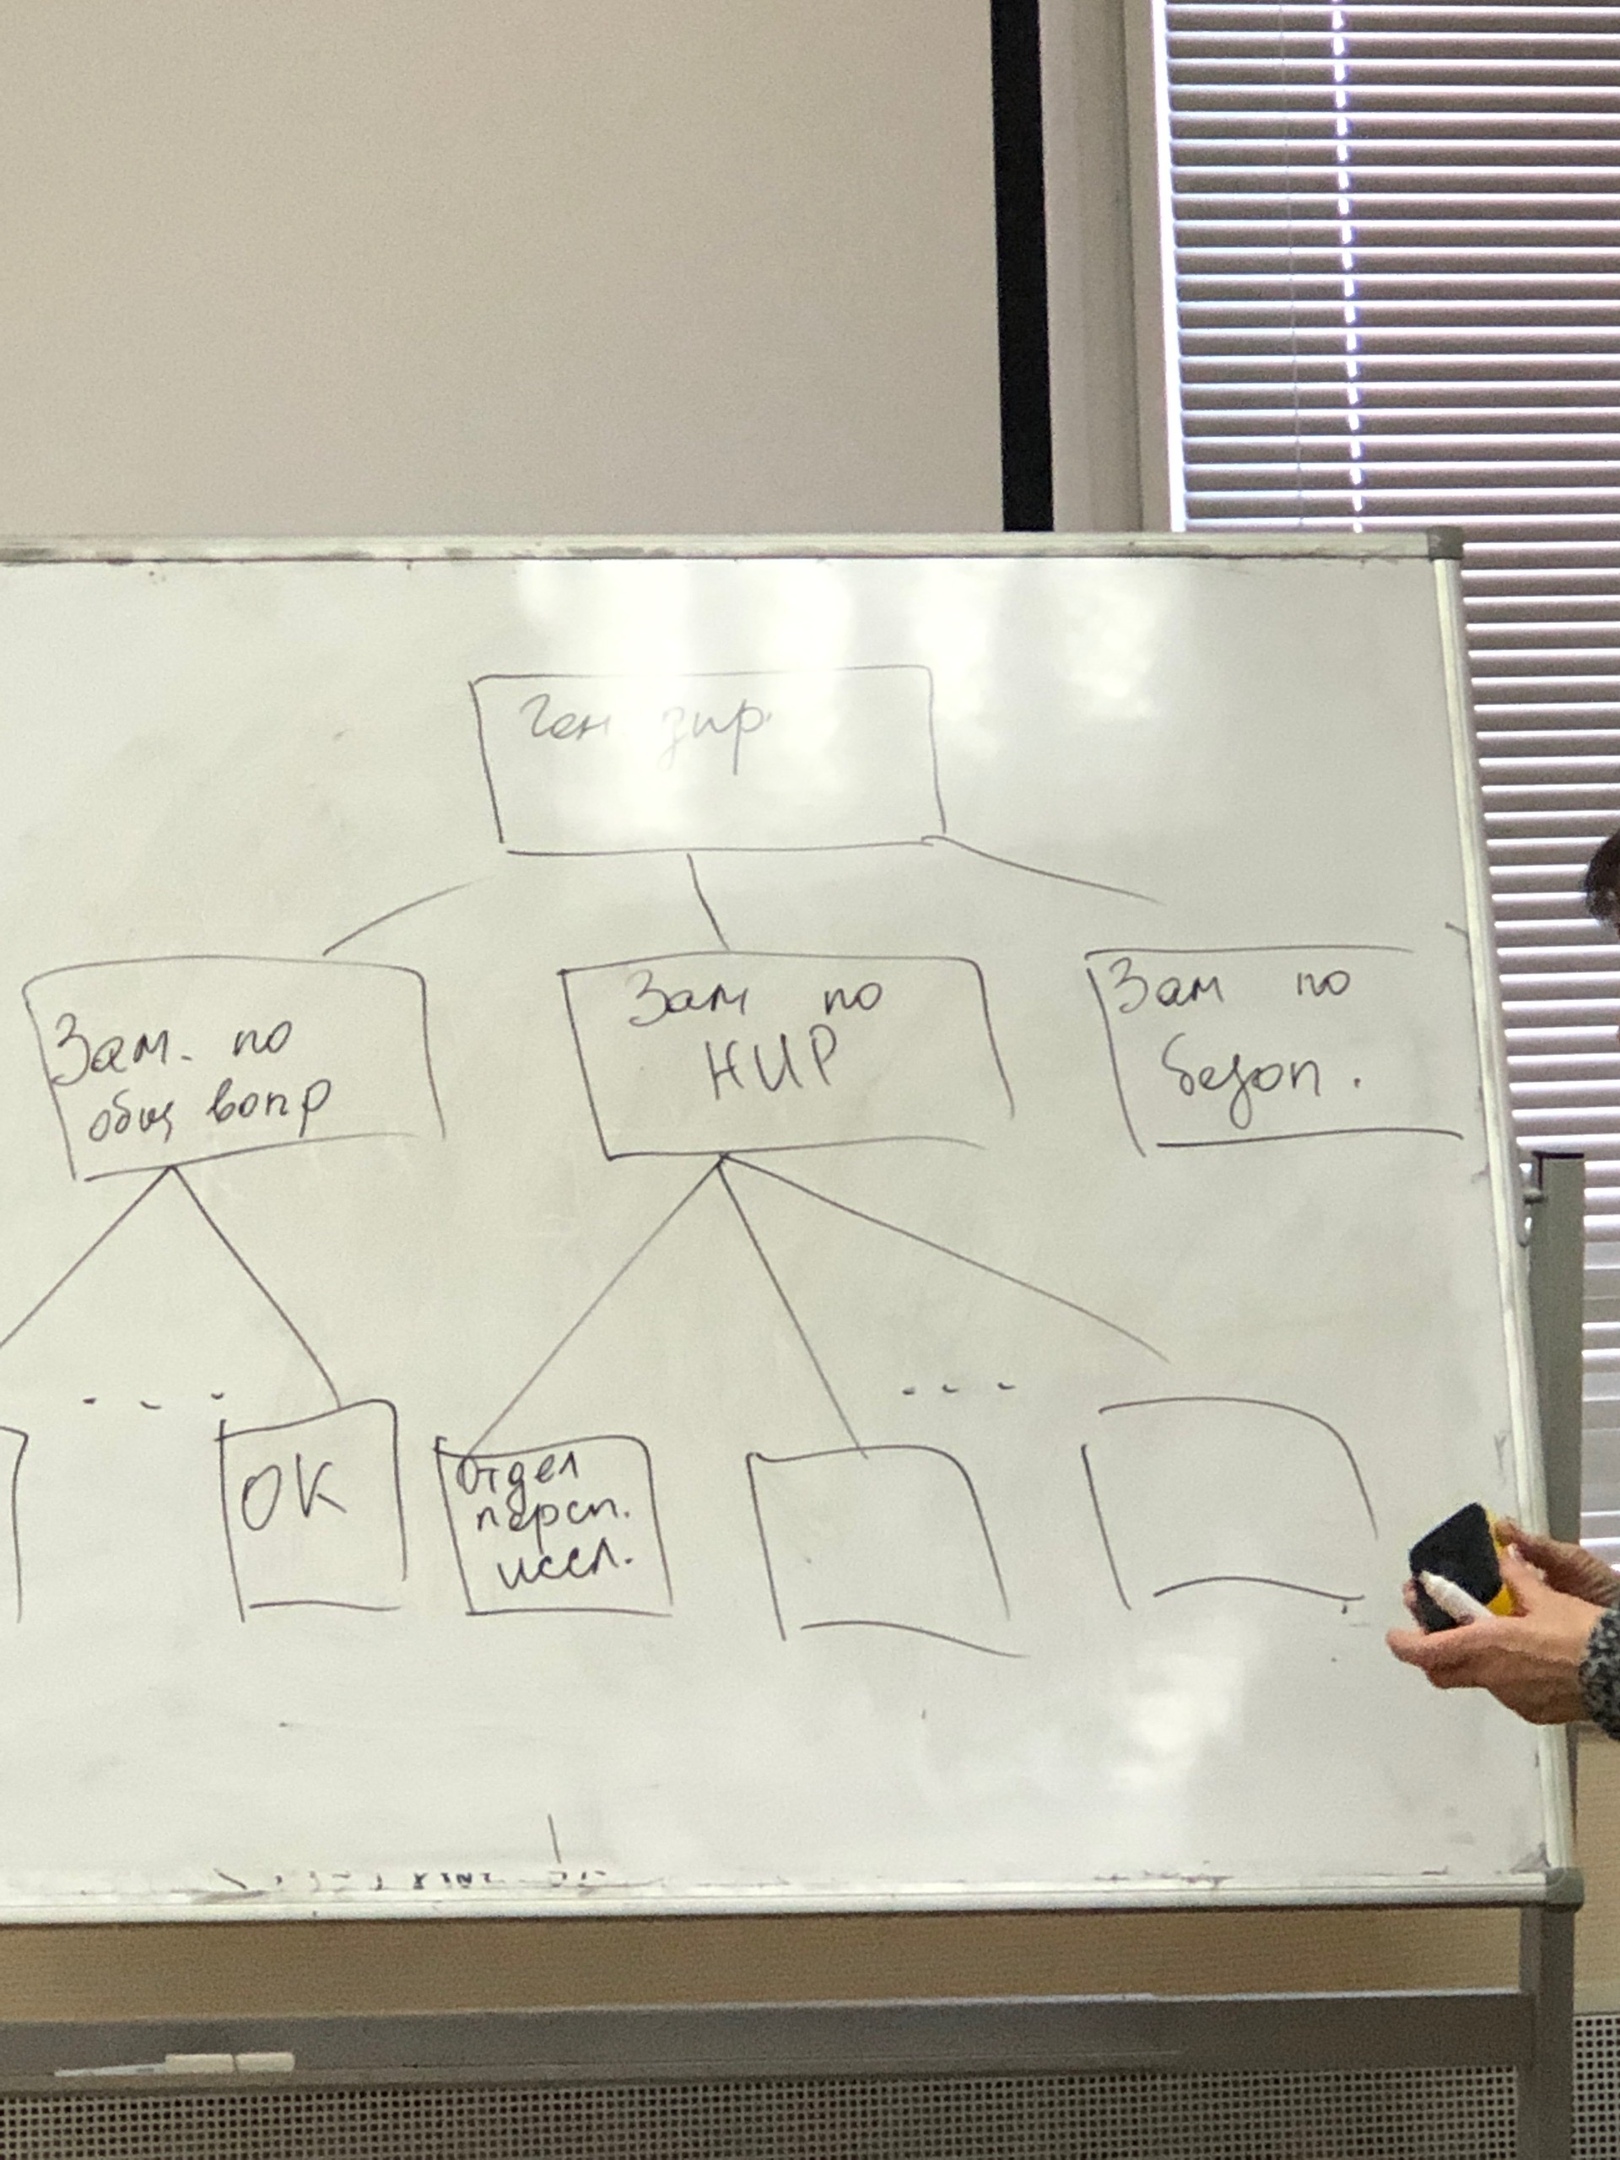 Ген дир.
Зам. по
общ вопр
Зам по
НИР
Зам по
безоп.
. . .
. . .
ОК
Отдел
персп.
иссл.